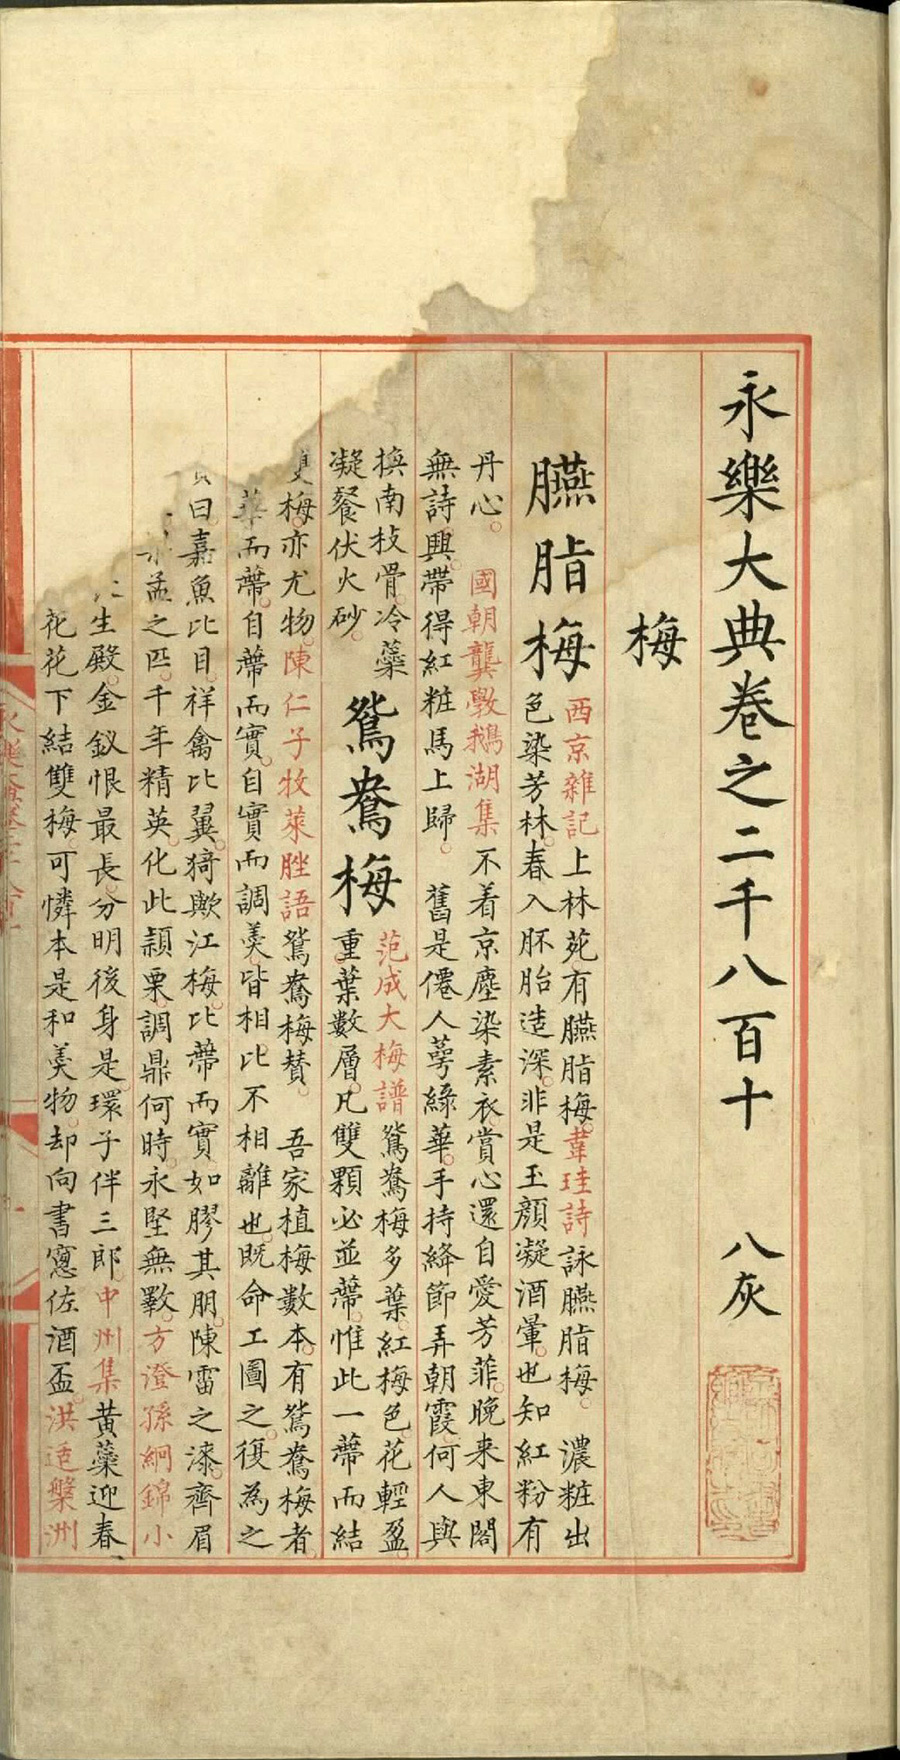 永樂大典卷之二千八百十　八灰
梅
臙脂梅
西京雜記上林苑有臙脂梅韋珪詩詠臙脂梅濃粧出
色染芳林春入胚胎造深非是玉顏凝酒暈也知紅粉有
丹心國朝龔斆鵝湖集不着京塵染素衣賞心還自愛芳菲晚來東閣
無詩興帶得紅粧馬上歸舊是僊人萼綠華手持絳節弄朝霞何人與
換南枝骨冷蘂
凝餐伏火砂
鴛鴦梅
范成大梅譜鴛鴦梅多葉紅梅色花輕盈
重葉數層凡雙顆必並蔕惟此一蔕而結
梅亦尤物陳仁子牧萊脞語鴛鴦梅贊吾家植梅數本有鴛鴦梅者
華而蔕自蔕而實自實而調羹皆相比不相離也既命工圖之復為之
曰嘉魚比目祥禽比翼猗歟江梅比蔕而實如膠其朋陳雷之漆齊眉
孟之匹千年精英化此頴栗調鼎何時永堅無斁方澄孫絅錦小
生殿金釵恨最長分明後身是環子伴三郎中州集黄蘂迎春
花花下結雙梅可憐本是和羹物却向書窻佐酒盃洪适槃洲